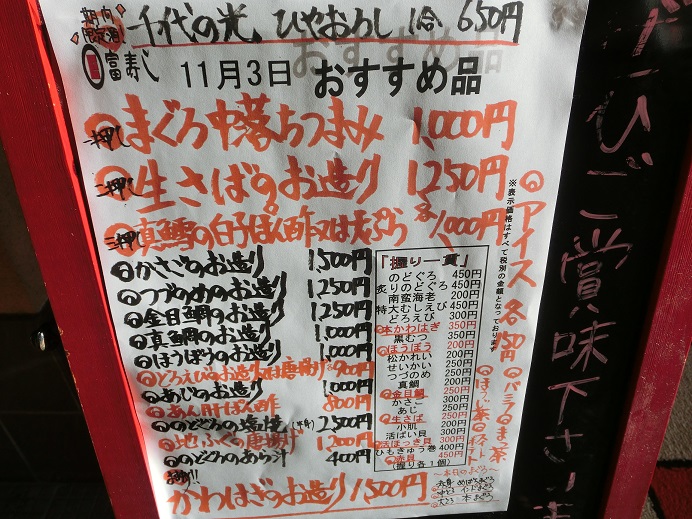 期間限定酒 千代の光 ひやおろし 1合 650円
富寿し 11月3日 おすすめ品
一押し まぐろ中落ちつまみ 1,000円
二押し 生さばのお造り 1,250円
三押し 真鱈の白子ぽん酢又は天ぷら 各1,000円
かさごのお造り 1,500円
つづのめのお造り 1,250円
金目鯛のお造り 1,250円
真鯛のお造り 1,000円
ほうぼうのお造り 1,000円
どろえびのお造り又は唐揚げ 各900円
あじのお造り 1,000円
あん肝ぽん酢 800円
のどぐろの塩焼(半身) 2,500円
地ふぐの唐揚げ 1,200円
のどぐろのあら汁 400円
かわはぎのお造り 1500円
「握り一貫」
のどぐろ 450円
炙りのどぐろ 450円
南蛮海老 200円
特大むしえび 400円
どろえび 300円
本かわはぎ 350円
黒むつ 350円
ほうぼう 200円
松かれい 200円
せいかい 250円
つづのめ 250円
真鯛 250円
金目鯛 250円
かさご 300円
あじ 250円
生さば 250円
小肌 200円
活ばい貝 300円
活ほっき貝 300円
ひもきゅう巻 400円
赤貝 450円
(握り各1個)
※表示価格はすべて税別の金額となっております
アイス 各150円
バニラ 抹茶
ほうじ茶
〜本日のまぐろ〜
赤身
中とろ
大とろ 本まぐろ
ぜひご賞味下さいま